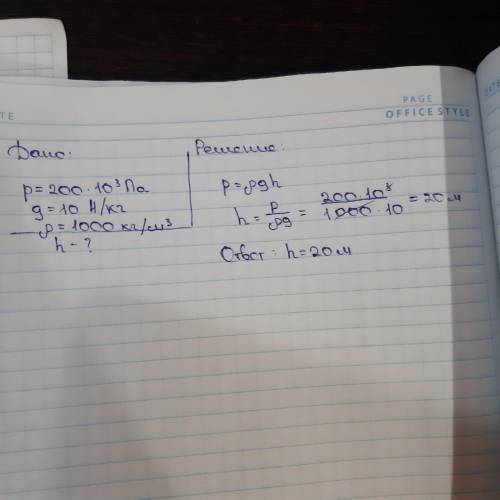 TE
PAGE
OFFICE STYLE
DATE
Дано:
p = 200 · 10³ Па
g = 10 Н/кг
ρ = 1000 кг/м³
h - ?
Решение:
p = ρgh
h = p/ρg = 200 · 10³/1000 · 10 = 20 м
Ответ: h = 20 м